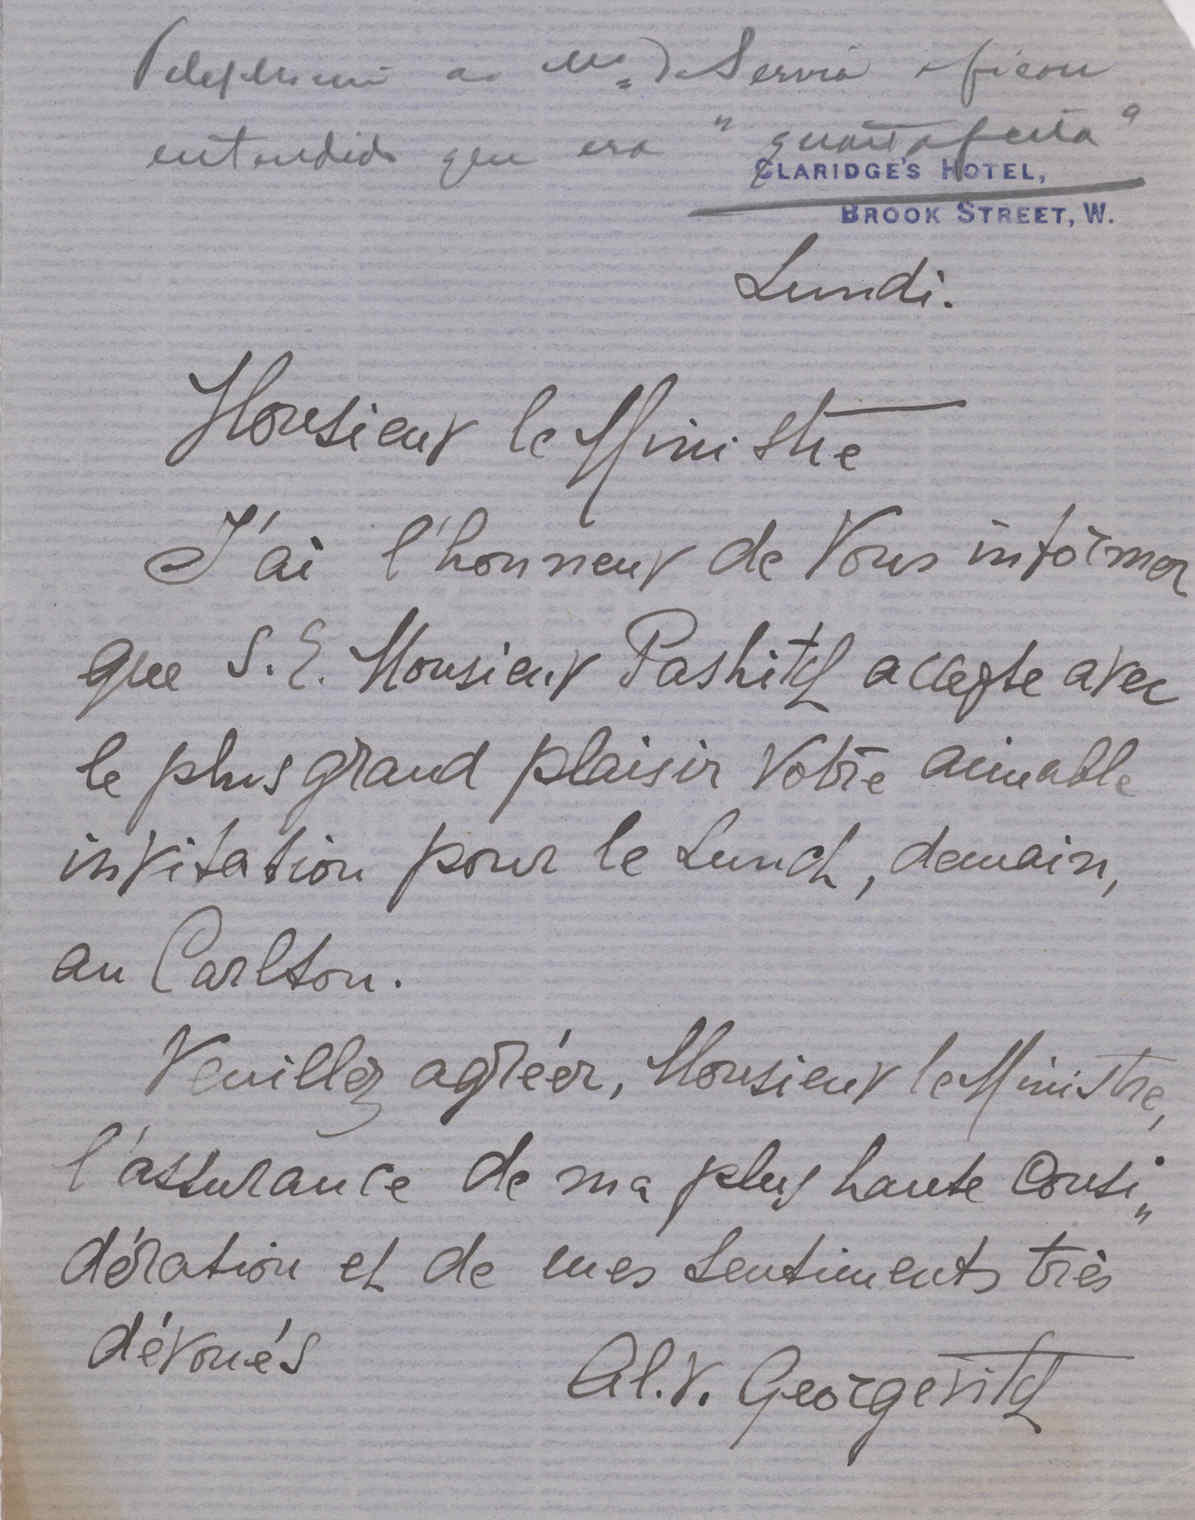 Telephonei ao Mº da Servia e ficou
entendido que era "quarta feira"
CLARIDGE'S HOTEL,
BROOK STREET, W.
Lundi.
Monsieur le Ministre
J'ai l'honneur de Vous informer
que S. E. Monsieur Pashitch accepte avec
le plus grand plaisir Votre aimable
invitation pour le Lunch, demain,
au Carlton.
Veuillez agréer, Monsieur le Ministre,
l'assurance de ma plus haute Consi„
dération et de mes sentiments très
dévoués
Al. V. Georgevitch